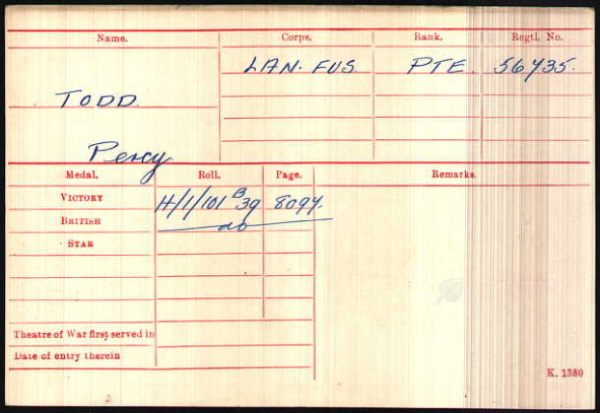 Name. Corps. Rank. Regtl. No.
LAN. FUS. PTE. 56735.
TODD
Percy
Medal. Roll. Page. Remarks.
VICTORY H/1/101 B39 8094.
BRITISH do
STAR
Theatre of War first served in
Date of entry therein
K. 1380